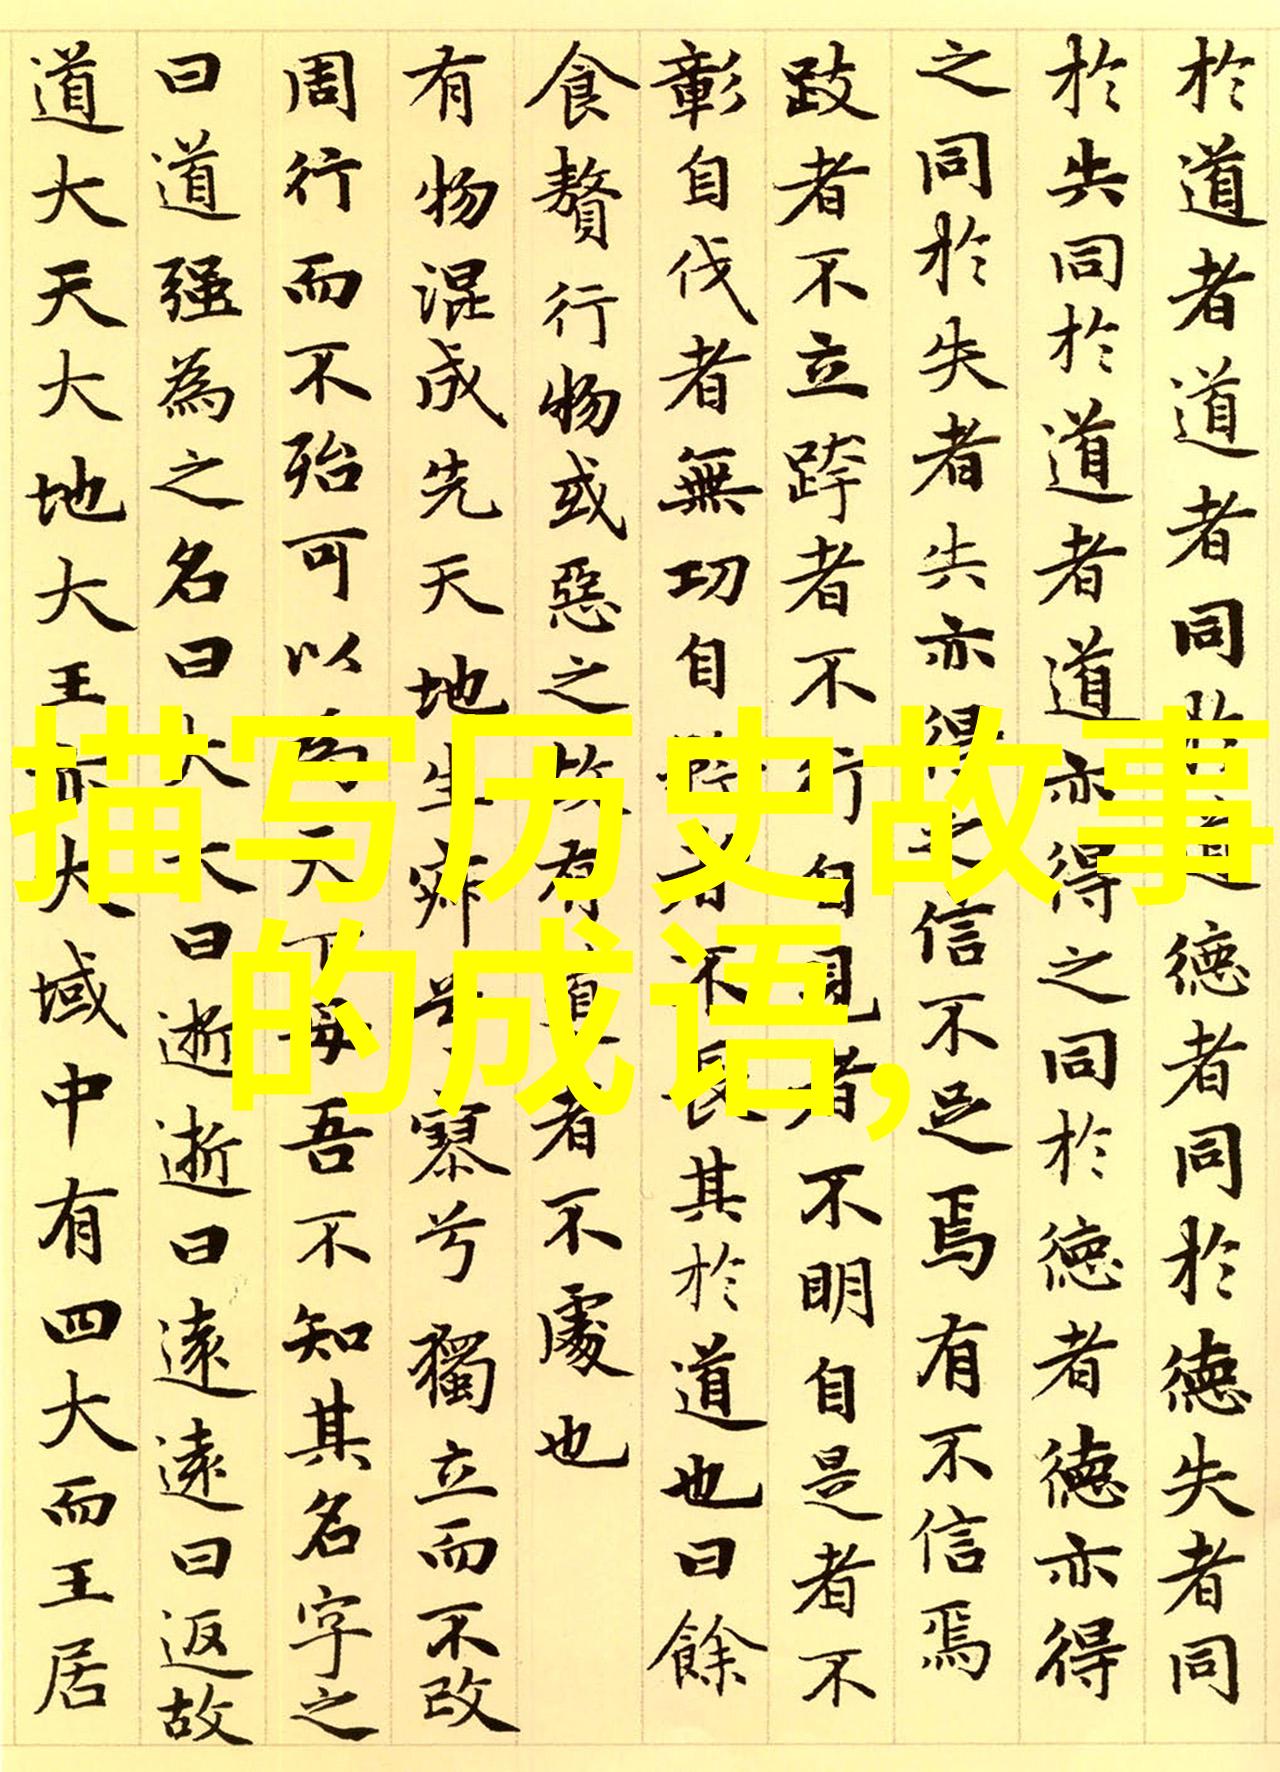 於道者道者同於道德者同於德失者同
於失同於道者道亦得之同於德者德亦得
之同於失者失亦得之信不足焉有不信焉
跂者不立跨者不行自見者不明自是者不
彰自伐者無功自矜者不長其於道也曰餘
食贅行物或惡之故有道者不處也
有物混成先天地生寂兮寥兮獨立而不改
周行而不殆可以為天下母吾不知其名字之
曰道强為之名曰大大曰逝逝曰遠遠曰返故
道大天大地大王亦大域中有四大而王居
描写历史故事
的成语,